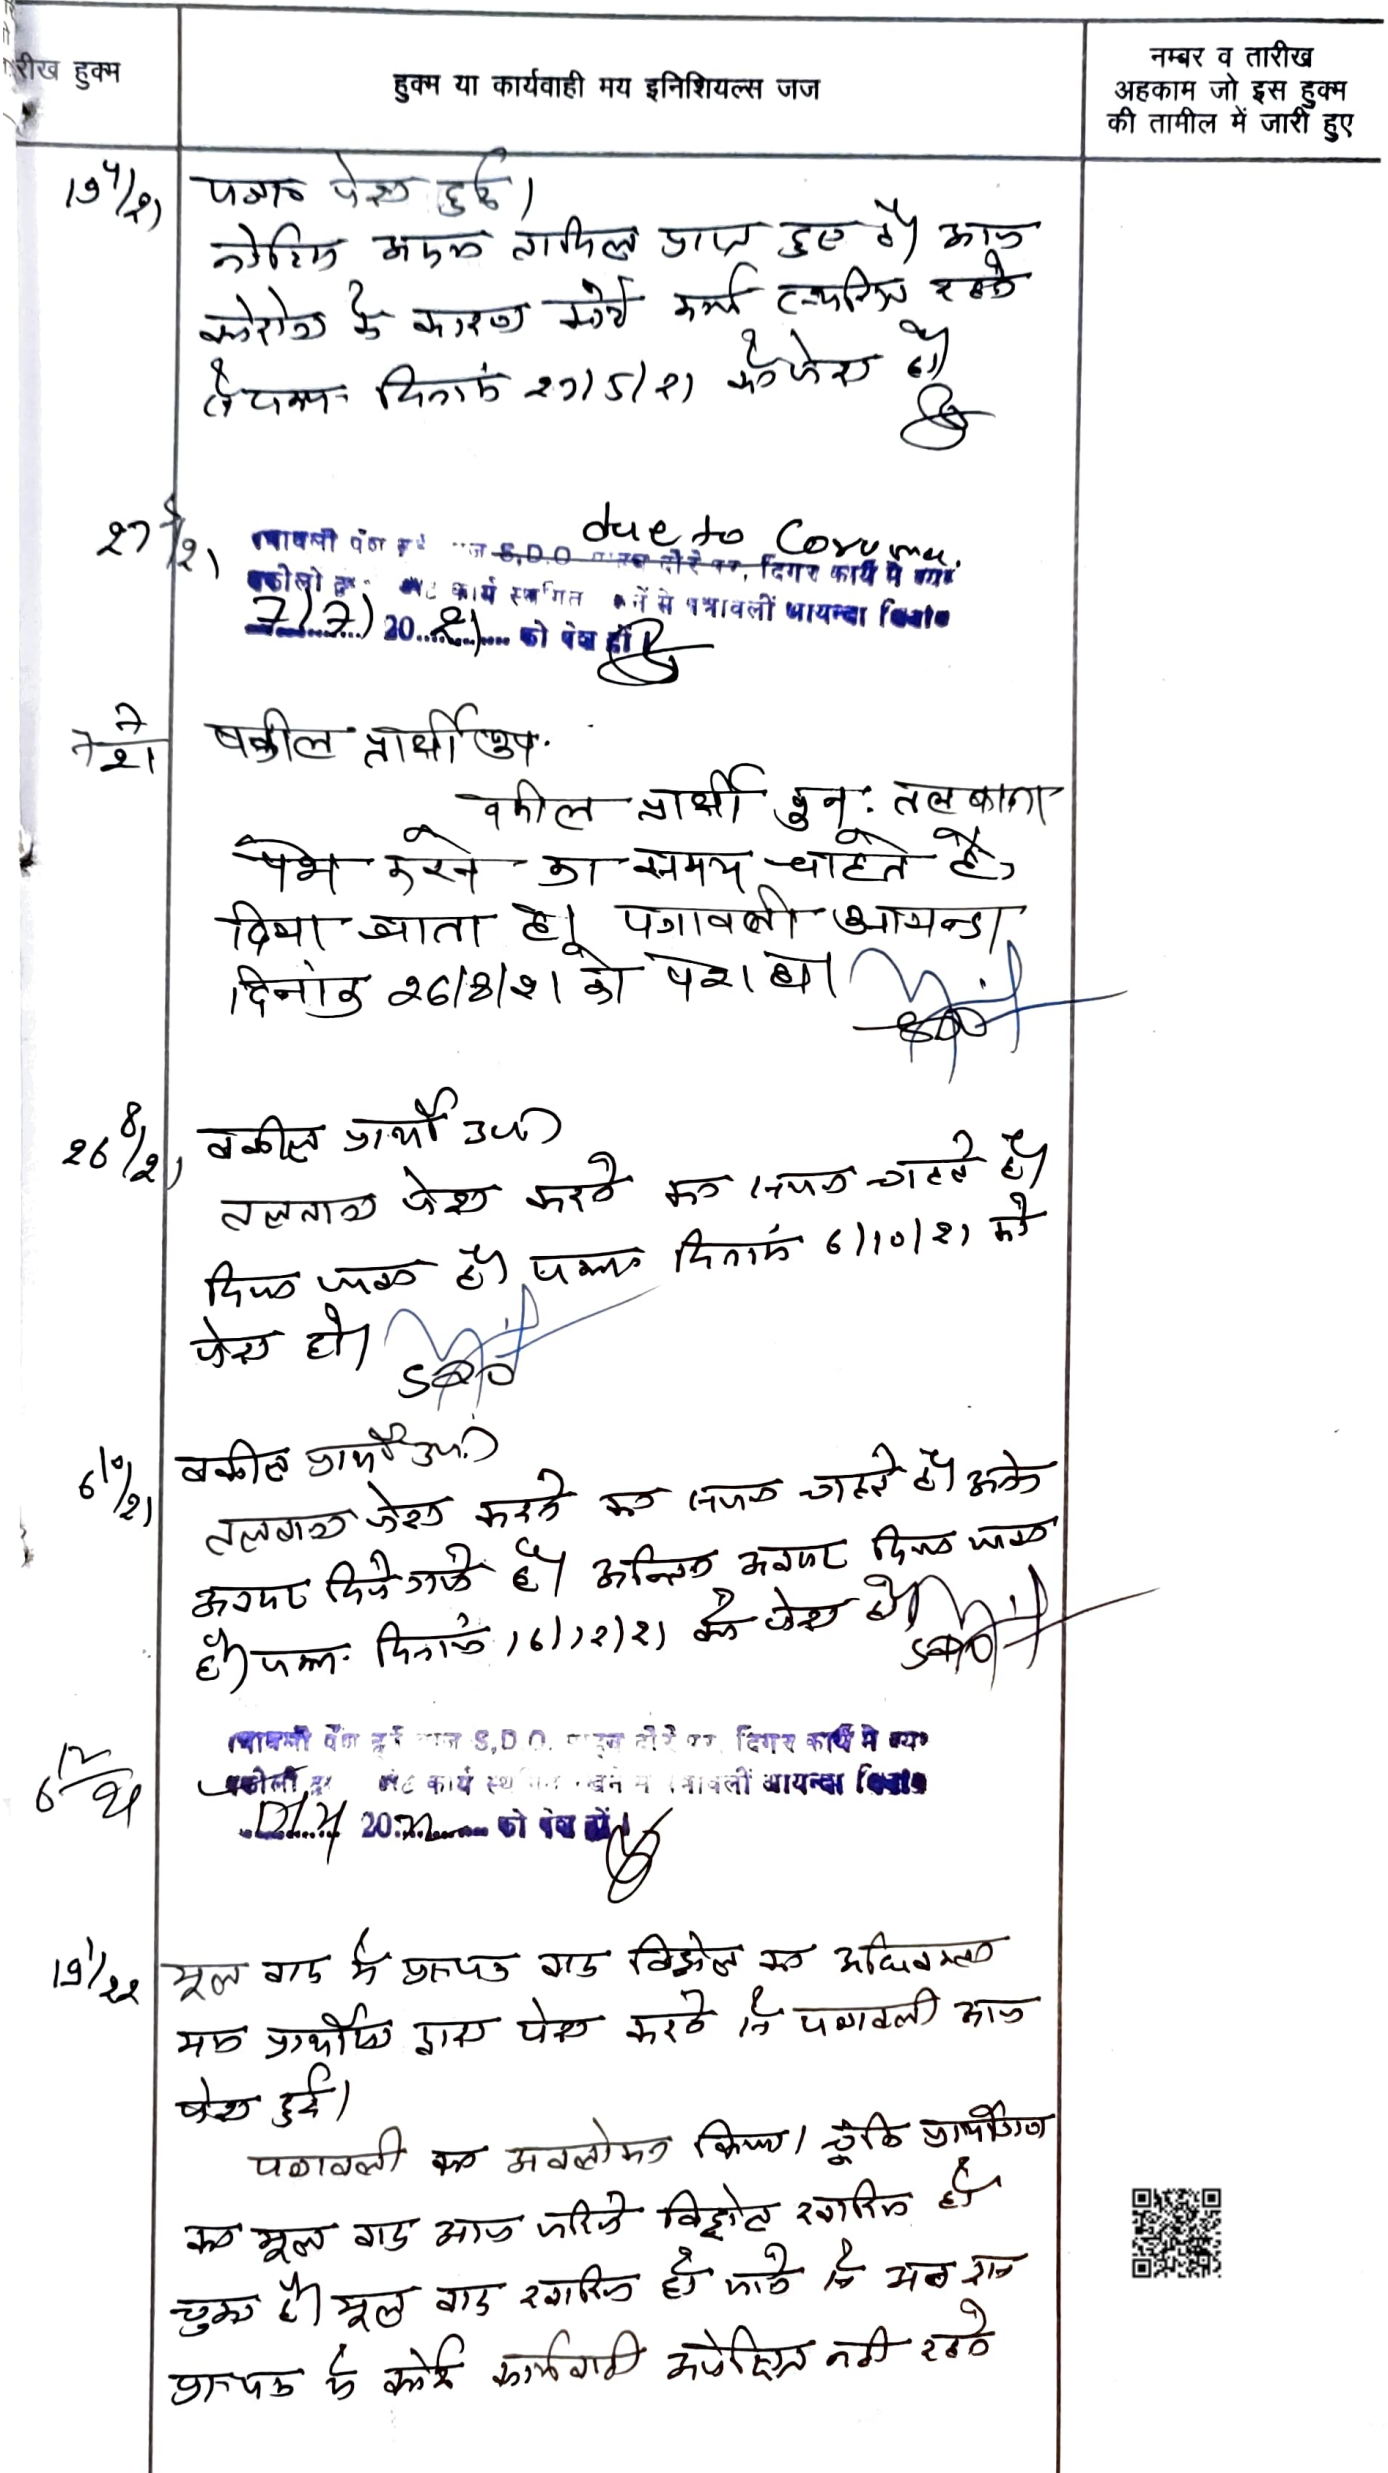 रीख हुक्म
हुक्म या कार्यवाही मय इनिशियल्स जज
नम्बर व तारीख
अहकाम जो इस हुक्म
की तामील में जारी हुए
19/4/21
पत्रा० पेश हुई।
नोटिस अदम तामिल प्राप्त हुए है। आज
कोरोना के कारण कोर्ट कार्य स्थगित रहने
से पत्रा० दिनांक 27/5/21 को पेश हो।
27/5/21
due to Corona
S.D.O. दौरे पर, दिगर कार्य मे व्यस्त
कार्य स्थगित रखने से पत्रावली आयन्दा दिनांक
7/7/ 2021 को पेश हो।
7/7/21
वकील प्रार्थी उप.
वकील प्रार्थी पुन: तलबाना
पेश करने का समय चाहते है,
दिया जाता है। पत्रावली आयन्दा
दिनांक 26/8/21 को पेश हो।
SDO
26/8/21
वकील प्रार्थी उप०
तलबाना पेश करने का समय चाहते है।
दिया जाता है। पत्रा० दिनांक 6/10/21 को
पेश हो।
SDO
6/10/21
वकील प्रार्थी उप०
तलबाना पेश करने का समय चाहते है। अनेक
अवसर दिये गये है। अन्तिम अवसर दिया जाता
है। पत्रा० दिनांक 16/12/21 को पेश हो।
SDO
S.D.O. दौरे पर, दिगर कार्य मे व्यस्त
कार्य स्थगित रखने से पत्रावली आयन्दा दिनांक
को पेश हो।
19/1/22
मूल वाद में प्रा०पत्र वाद विड्रोल का अधिवक्ता
मय प्रार्थीया द्वारा पेश करने से पत्रावली आज
पेश हुई।
पत्रावली का अवलोकन किया। चूंकि प्रार्थीगण
का मूल वाद आज जरिये विड्रोल खारिज हो
चुका है। मूल वाद खारिज हो जाने से अब इस
प्रा०पत्र में कोई कार्यवाही अपेक्षित नही रहने